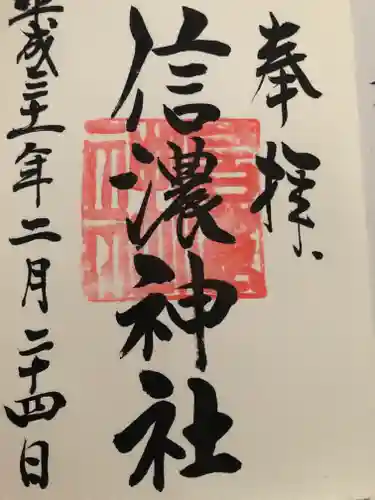 奉拝
信濃神社
平成三十一年二月二十四日